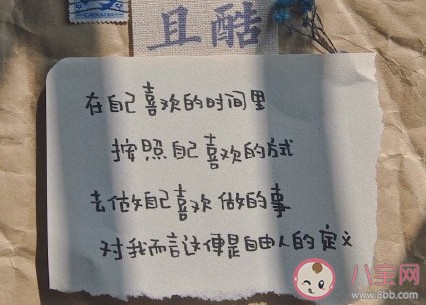 且酷
在自己喜欢的时间里
按照自己喜欢的方式
去做自己喜欢做的事
对我而言这便是自由人的定义
八宝网
www.8bb.com